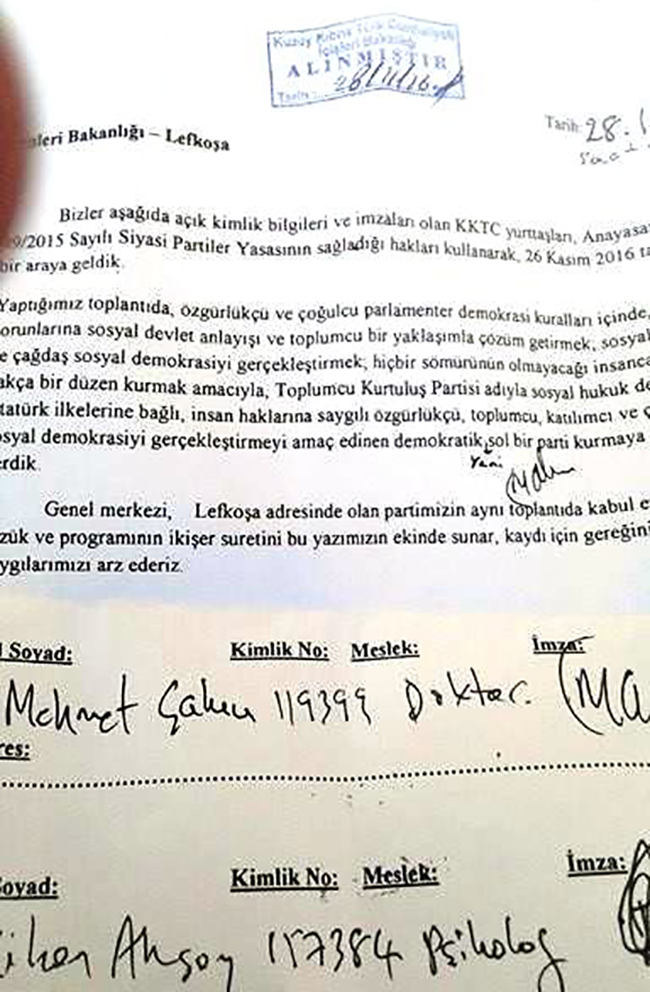 Kuzey Kıbrıs Türk Cumhuriyeti
İçişleri Bakanlığı
ALINMIŞTIR
Tarih: 28/11/16
Tarih: 28.1
leri Bakanlığı – Lefkoşa
Bizler aşağıda açık kimlik bilgileri ve imzaları olan KKTC yurttaşları, Anayasa
9/2015 Sayılı Siyasi Partiler Yasasının sağladığı hakları kullanarak, 26 Kasım 2016 ta
bir araya geldik.
Yaptığımız toplantıda, özgürlükçü ve çoğulcu parlamenter demokrasi kuralları içinde,
orunlarına sosyal devlet anlayışı ve toplumcu bir yaklaşımla çözüm getirmek, sosyal
e çağdaş sosyal demokrasiyi gerçekleştirmek, hiçbir sömürünün olmayacağı insanca
akça bir düzen kurmak amacıyla, Toplumcu Kurtuluş Partisi adıyla sosyal hukuk de
tatürk ilkelerine bağlı, insan haklarına saygılı özgürlükçü, toplumcu, katılımcı ve ç
osyal demokrasiyi gerçekleştirmeyi amaç edinen demokratik sol bir parti kurmaya
erdik.
Yeni
Genel merkezi, Lefkoşa adresinde olan partimizin aynı toplantıda kabul e
zük ve programının ikişer suretini bu yazımızın ekinde sunar, kaydı için gereğini
ygılarımızı arz ederiz.
Soyad: Kimlik No: Meslek: İmza:
Mehmet Çakıcı 119399 Doktor.
res:
Soyad: Kimlik No: Meslek: İmza:
Aksoy 157384 Psikolog